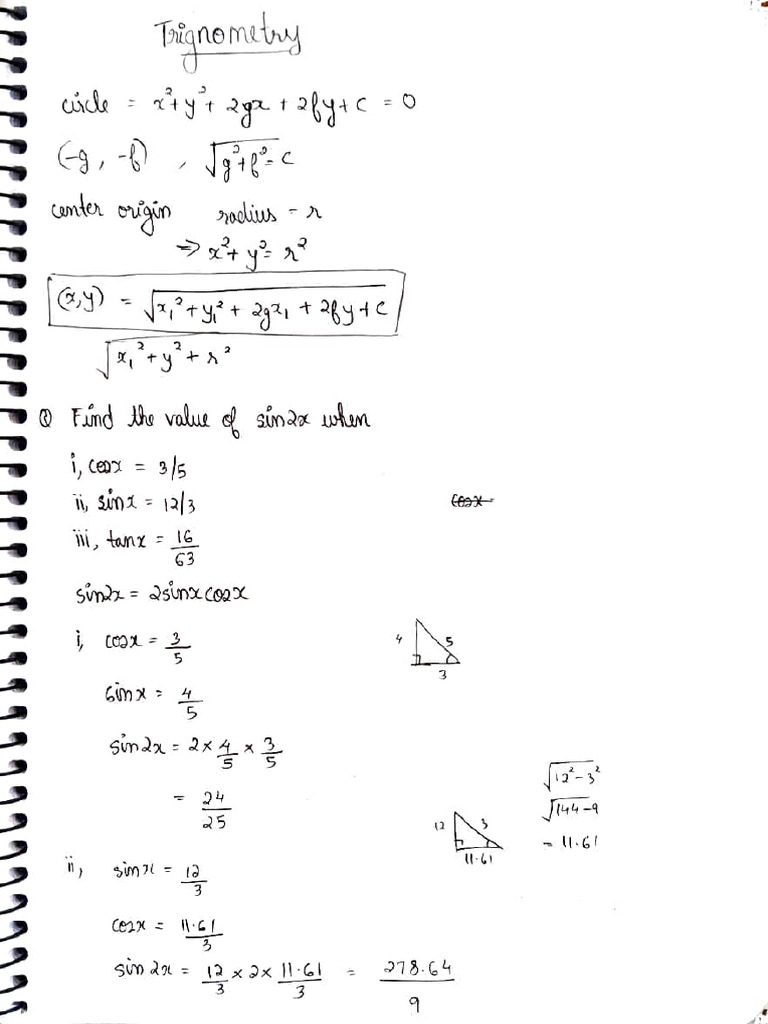 Trignometry
circle = x²+y²+ 2gx + 2fy+c = 0
(-g, -f) , √g²+f²-c
center origin radius - r
⇒ x²+y²= r²
(x,y) = √x₁²+y₁²+ 2gx₁ + 2fy+c
√x₁²+y²+r²
Q Find the value of sin2x when
i, cosx = 3/5
ii, sinx = 12/3
cosx
iii, tanx = 16/63
sin2x = 2sinxcosx
i, cosx = 3/5
4 5
3
sinx = 4/5
sin2x = 2 × 4/5 × 3/5
= 24/25
√12²-3²
√144-9
= 11.61
12 3
11.61
ii, sinx = 12/3
cosx = 11.61/3
sin 2x = 12/3 × 2 × 11.61/3 = 278.64/9